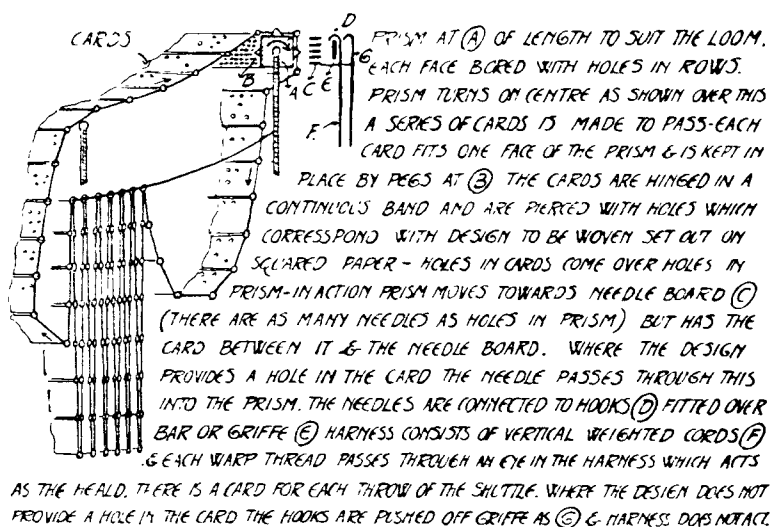 CARDS
D
G
B A C E
F
PRISM AT (A) OF LENGTH TO SUIT THE LOOM.
EACH FACE BORED WITH HOLES IN ROWS.
PRISM TURNS ON CENTRE AS SHOWN OVER THIS
A SERIES OF CARDS IS MADE TO PASS-EACH
CARD FITS ONE FACE OF THE PRISM & IS KEPT IN
PLACE BY PEGS AT (B) THE CARDS ARE HINGED IN A
CONTINUOUS BAND AND ARE PIERCED WITH HOLES WHICH
CORRESPOND WITH DESIGN TO BE WOVEN SET OUT ON
SQUARED PAPER - HOLES IN CARDS COME OVER HOLES IN
PRISM-IN ACTION PRISM MOVES TOWARDS NEEDLE BOARD (C)
(THERE ARE AS MANY NEEDLES AS HOLES IN PRISM) BUT HAS THE
CARD BETWEEN IT & THE NEEDLE BOARD. WHERE THE DESIGN
PROVIDES A HOLE IN THE CARD THE NEEDLE PASSES THROUGH THIS
INTO THE PRISM. THE NEEDLES ARE CONNECTED TO HOOKS (D) FITTED OVER
BAR OR GRIFFE (E) HARNESS CONSISTS OF VERTICAL WEIGHTED CORDS (F)
& EACH WARP THREAD PASSES THROUGH AN EYE IN THE HARNESS WHICH ACTS
AS THE HEALD. THERE IS A CARD FOR EACH THROW OF THE SHUTTLE. WHERE THE DESIGN DOES NOT
PROVIDE A HOLE IN THE CARD THE HOOKS ARE PUSHED OFF GRIFFE AS (G) & HARNESS DOES NOT ACT.